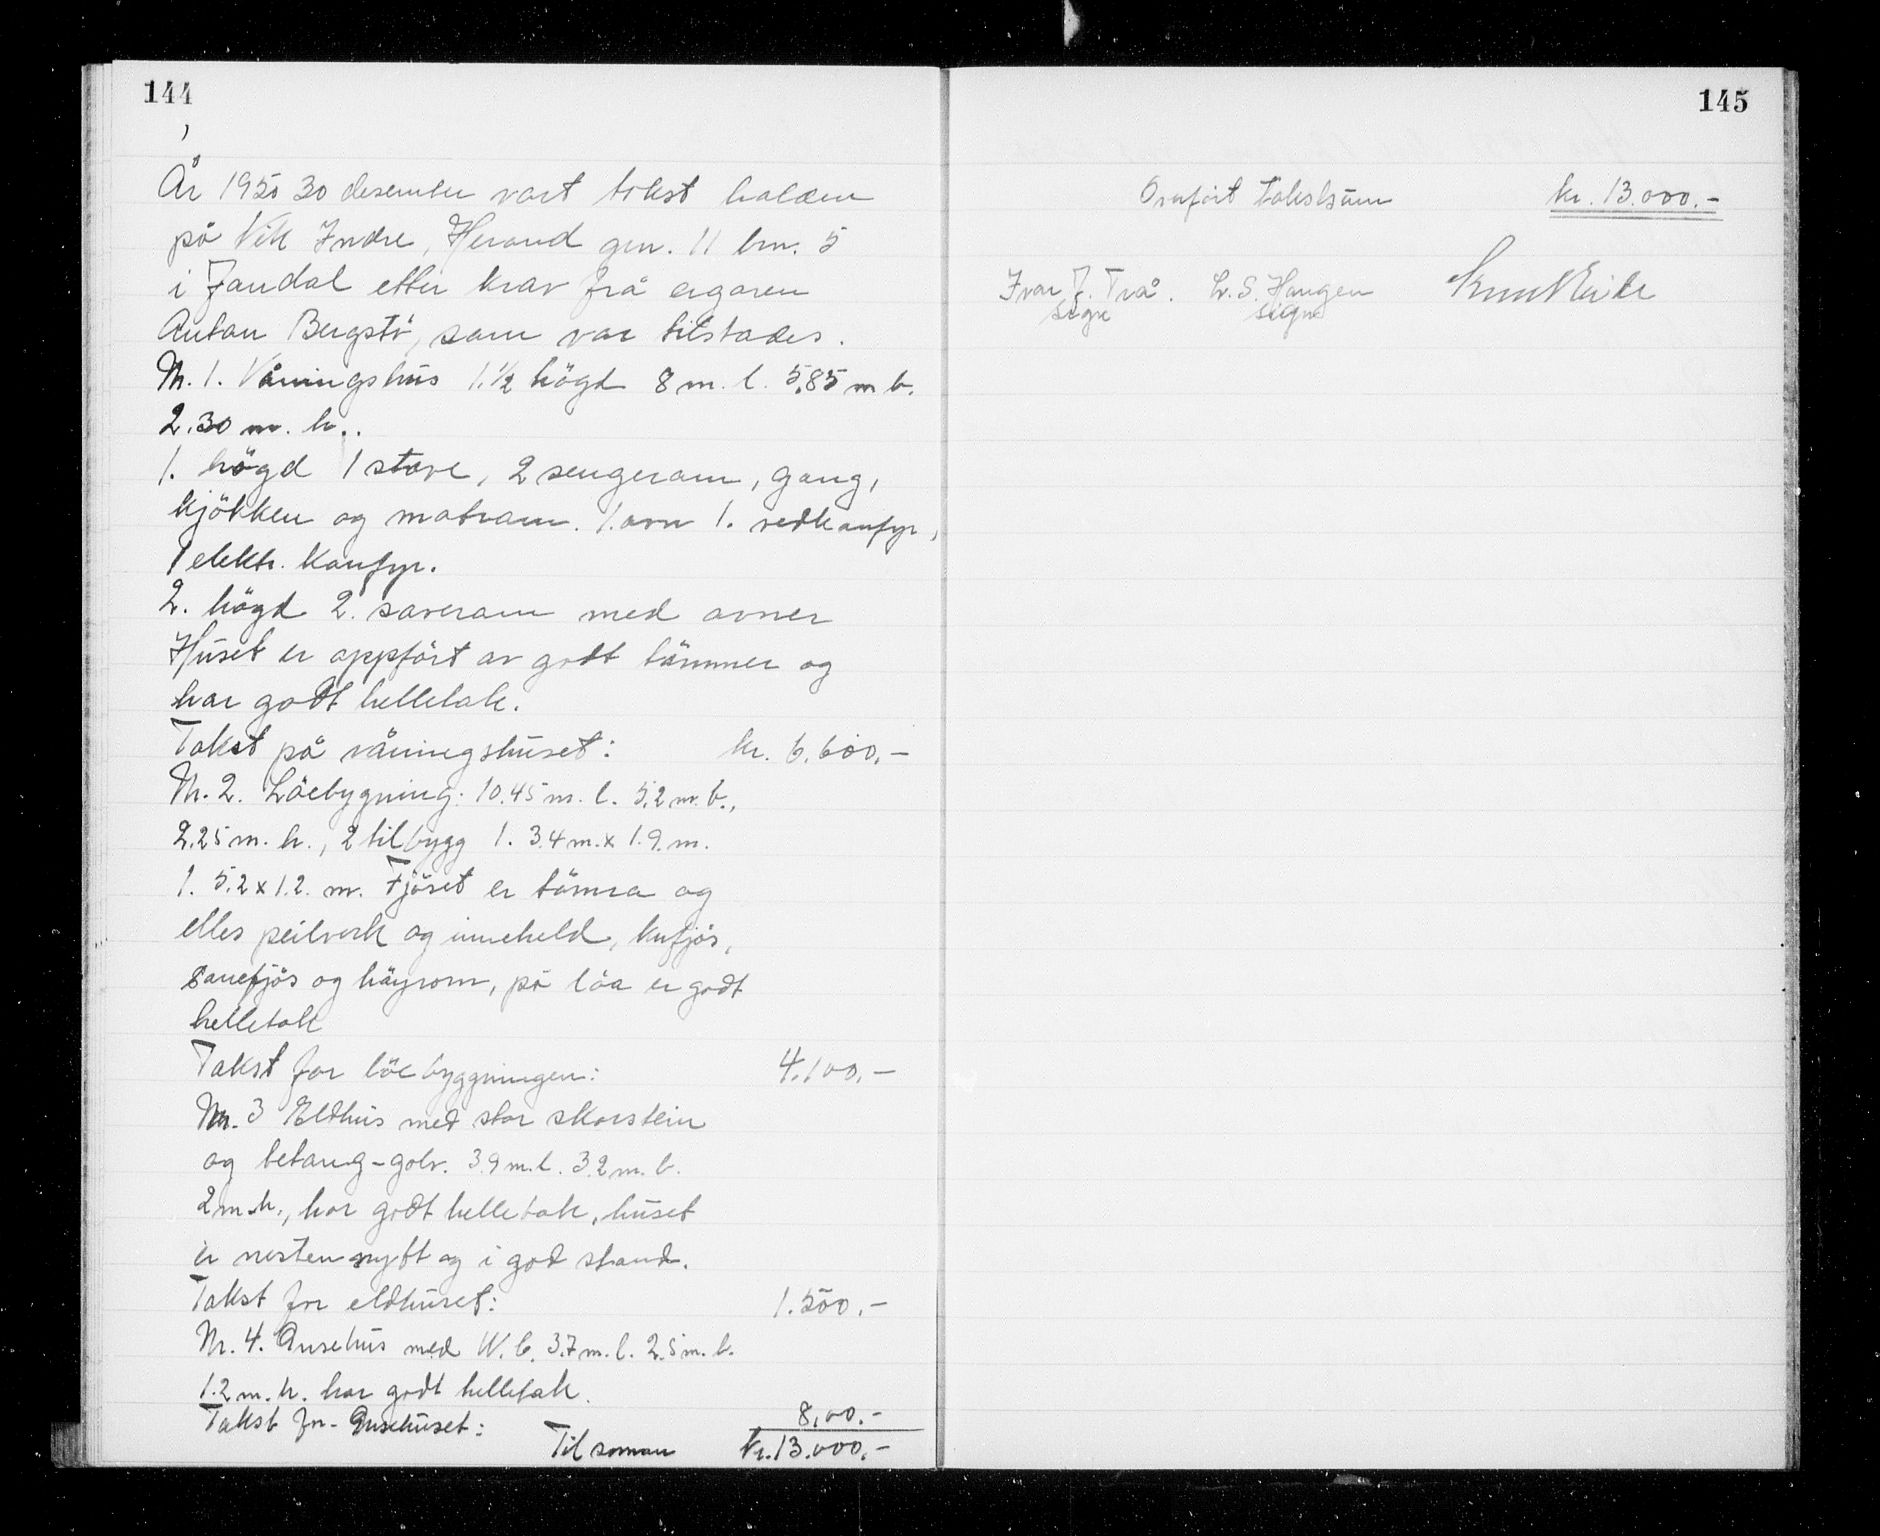 144
År 1950 30 desember vart takst halden
på Vik Indre, Herand gnr. 11 bnr. 5
i Jondal etter krav frå eigaren
Anton Bergstö, som var tilstades.
Nr. 1. Våningshus 1.½ högd 8 m. l. 5,85 m b.
2.30 m. h..
1. högd 1 stove, 2 sengerom, gang,
kjökken og matrom. 1. ovn 1. vedkomfyr,
1 elektr. komfyr.
2. högd 2. soverom med ovner
Huset er oppfört av godt tömmer og
har godt helletak.
Takst på våningshuset: kr. 6.600,-
Nr. 2. Löebygning: 10.45 m. l. 5.2 m. b.,
2.25 m. h., 2 tilbygg 1. 3.4 m. x 1.9. m.
1. 5.2 x 1.2. m. Fjöset er tömra og
elles peilverk og inneheld, kufjös,
sauefjös og höyrom, på löa er godt
helletak
Takst for löebyggningen: 4.100,-
Nr. 3 Eldhus med stor skorstein
og betong-golv. 3.9 m. l. 3.2 m. b.
2 m. h., har godt helletak, huset
er nesten nytt og i god stand.
Takst for eldhuset: 1.500,-
Nr. 4. Grisehus med W. C. 3.7 m. l. 2.5 m. b.
1.2 m. h. har godt helletak.
Takst for Grisehuset: 8,00.-
Til saman kr. 13.000,-
145
Overfört takstsum kr. 13.000.-
Ivar J. Trå. L. S. Haugen Knut Eide
sign sign